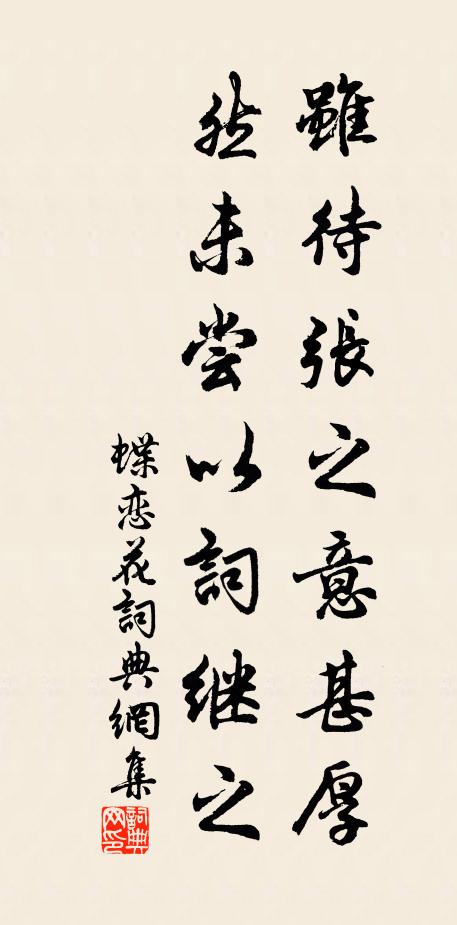 雖待張之意甚厚
然未尝以詞继之
蝶恋花詞典網集
詞典
网印